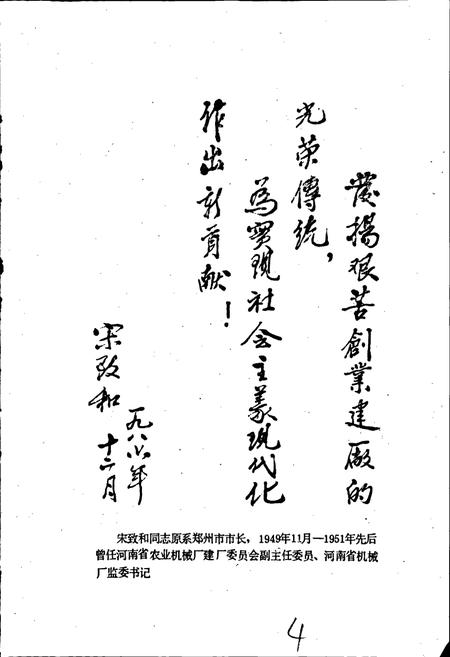 發揚艰苦創業建廠的
光荣傳統，
為实现社会主義现代化
作出新貢献！
宋致和
一九八六年
十二月
宋致和同志原系郑州市市长，1949年11月—1951年先后
曾任河南省农业机械厂建厂委员会副主任委员、河南省机械
厂监委书记
4